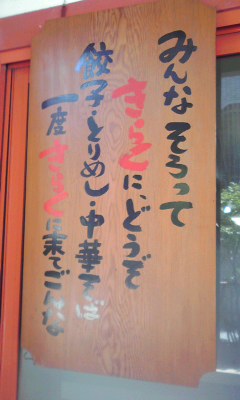 みんなそろって
さらとに、どうぞ
餃子・とりめし・中華そば
一度さらとに来てごんな